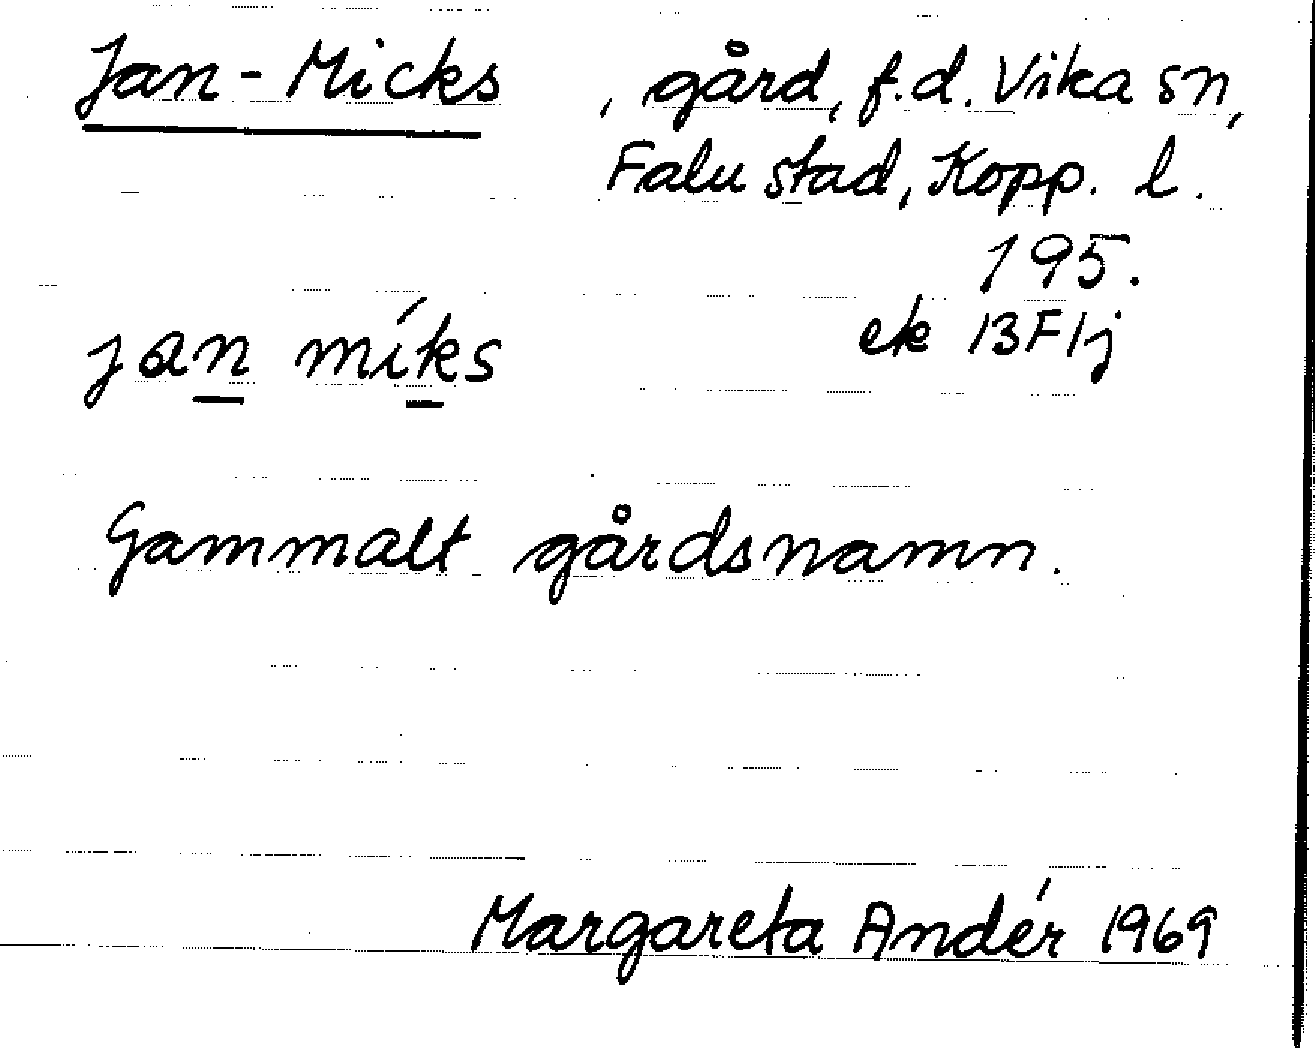 Jan-Micks , gård, f.d. Vika sn,
Falu stad, Kopp. l.
195.
ek 13F1j
jan míks
Gammalt gårdsnamn.
Margareta Andér 1969